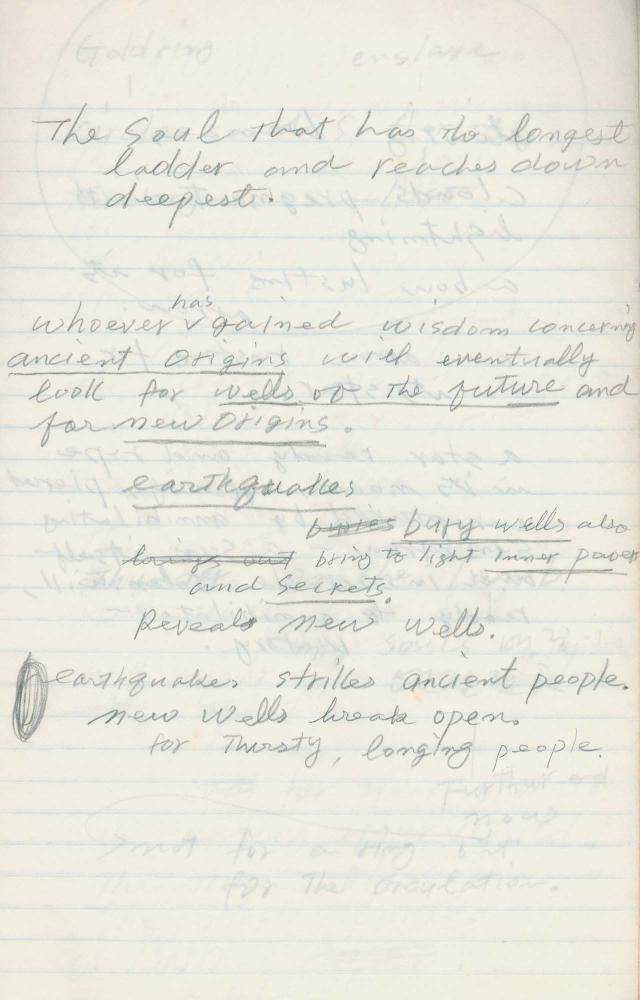 The Soul that has the longest
ladder and reaches down
deepest.
has
whoever gained wisdom concerning
ancient origins will eventually
look for wells of the future and
for new origins.
earthquakes
buries bury wells also
brings out bring to light inner power
and Secrets.
Reveals new wells.
earthquakes strikes ancient people.
new wells break open.
for Thirsty, longing people.